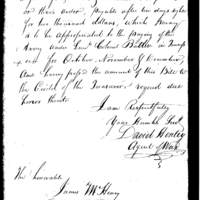 or their order, payable after ten days sight
for two thousand dollars, which money
is to be appropriated to the paying of the
Army under Lieut Colonel Butler in Tennes-
see for October, November & December,
And please pass the amount of this Bill to
the Credit of the Treasurer's regard due
honor thereto
I am Respectfully
Your Humble Servt.
David Henley
Agent of War
The honorable
James McHenry